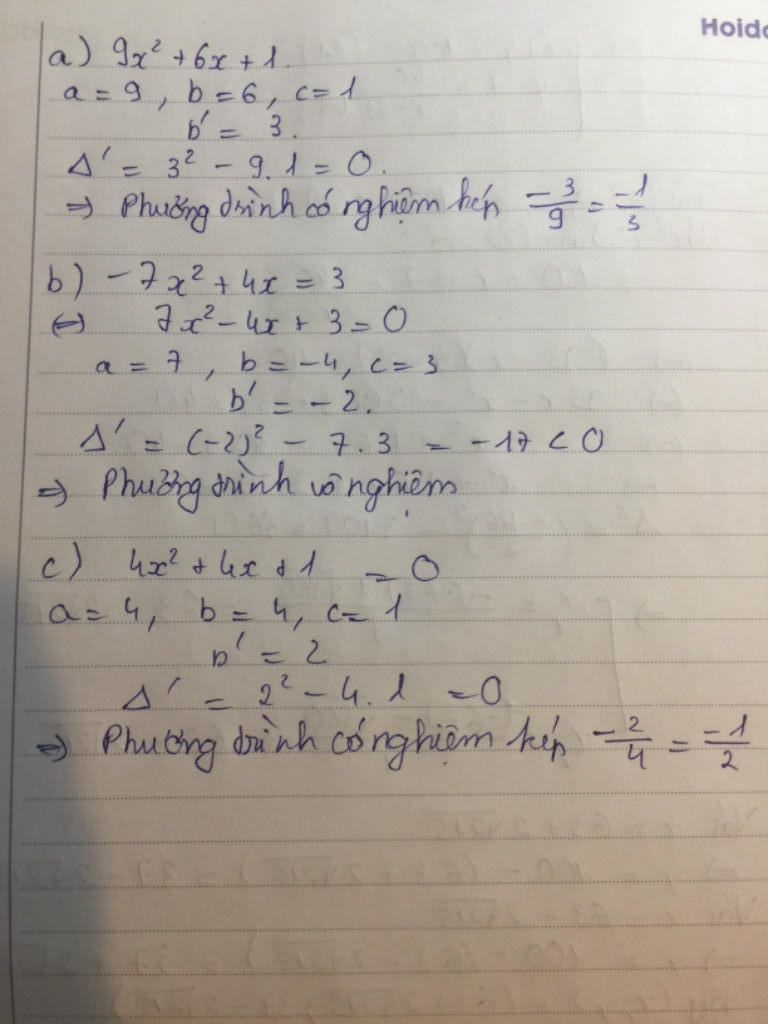 Hoido
a) 9x² + 6x + 1.
a = 9, b = 6, c = 1
b' = 3.
Δ' = 3² - 9.1 = 0.
⇒ Phương trình có nghiệm kép -3/9 = -1/3
b) -7x² + 4x = 3
⇔ 7x² - 4x + 3 = 0
a = 7, b = -4, c = 3
b' = -2.
Δ' = (-2)² - 7.3 = -17 < 0
⇒ Phương trình vô nghiệm
c) 4x² + 4x + 1 = 0
a = 4, b = 4, c = 1
b' = 2
Δ' = 2² - 4.1 = 0
⇒ Phương trình có nghiệm kép -2/4 = -1/2